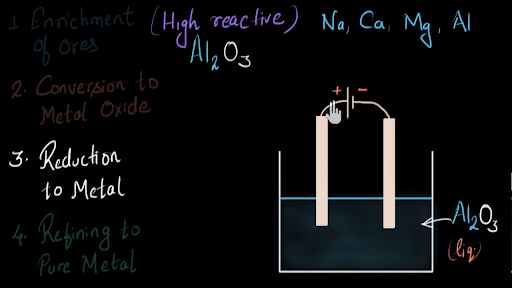 1. Enrichment
of Ores
(High reactive) Na, Ca, Mg, Al
Al₂O₃
2. Conversion to
Metal Oxide
3. Reduction
to Metal
4. Refining to
Pure Metal
+ -
Al₂O₃
(liq)